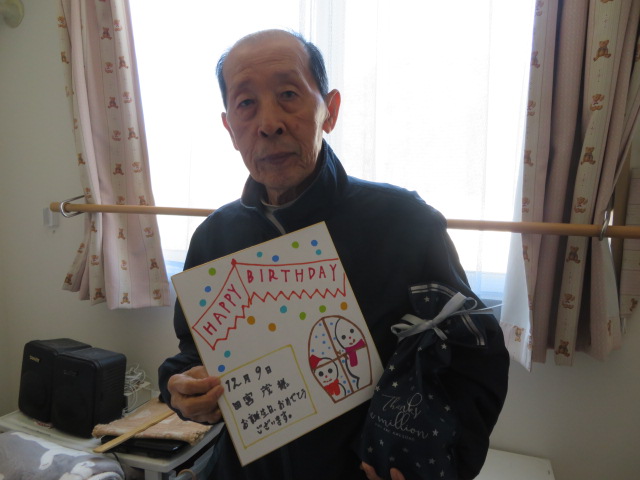 HAPPY BIRTHDAY
12月9日
田宮 茂 様
お誕生日、おめでとう
ございます。
Thanks
a million